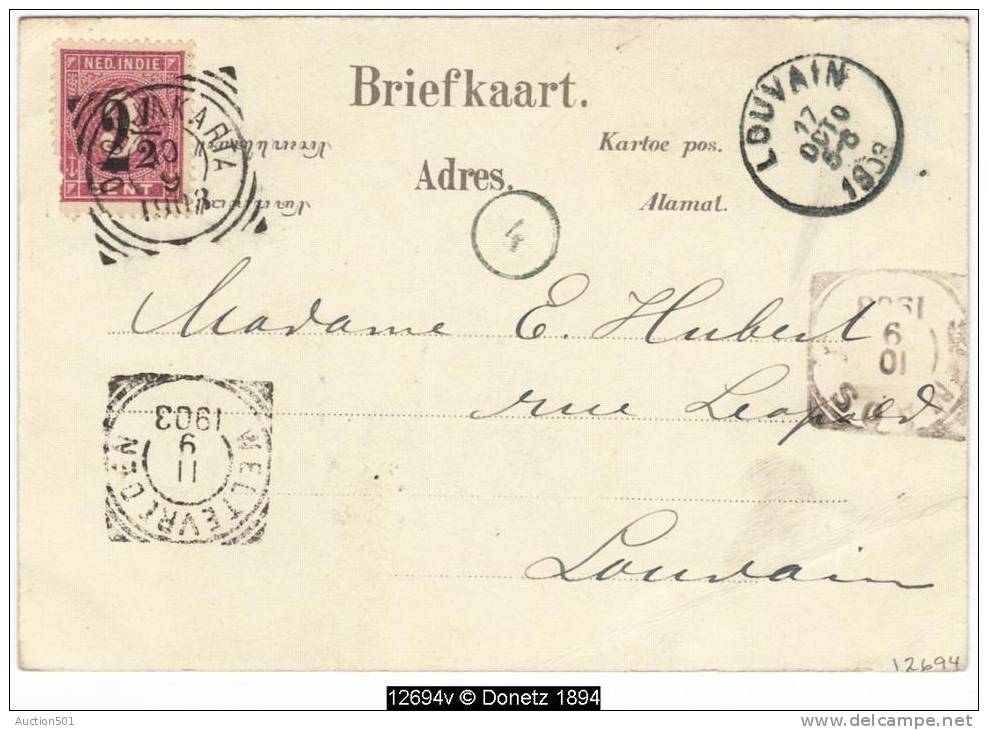 NED. INDIE
2 1/2
CENT
1903
Briefkaart.
Kartoe pos.
Adres.
Alamat.
LOUVAIN
17
OCTO
1903
4
Madame E. Hubert
rue Léopold
Louvain
WELTEVREDEN
11
9
1903
10
9
12694
12694v © Donetz 1894
Auction501
www.delcampe.net